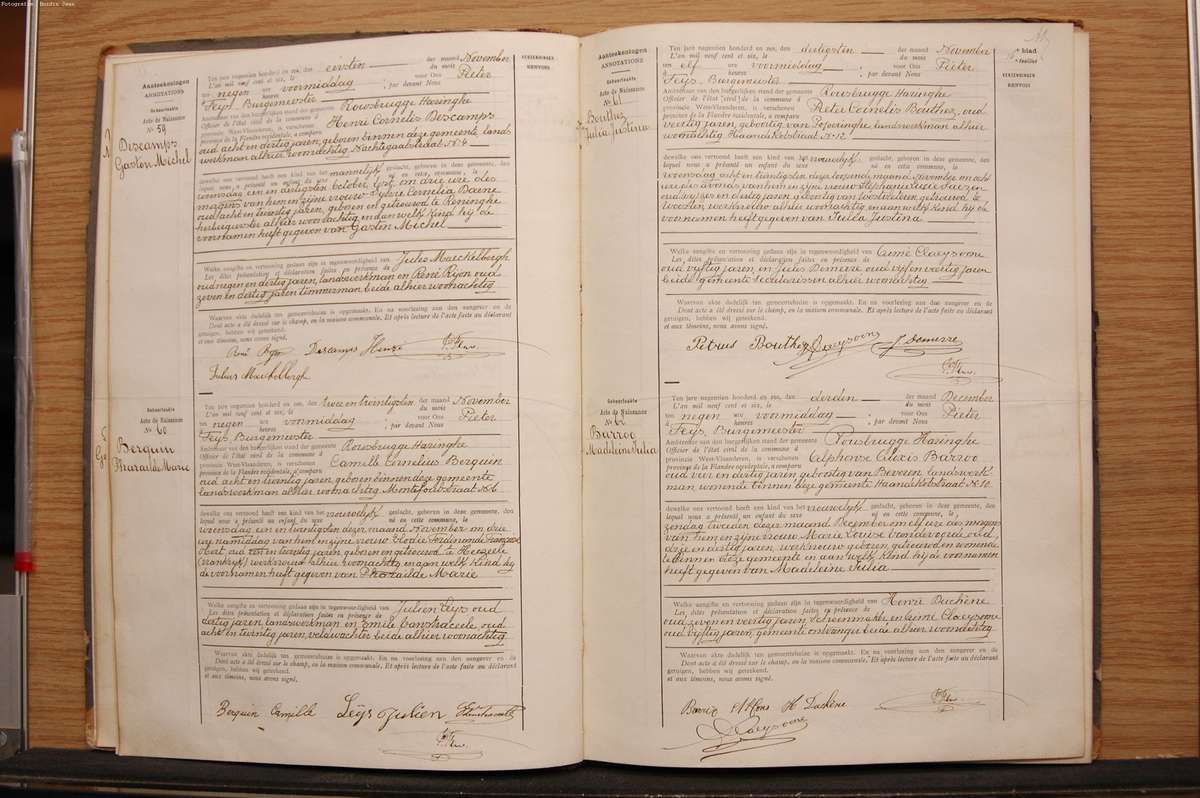 Fotografie: Bonfix Jean
Aanteekeningen
ANNOTATIONS
Geboorteakte
Acte de Naissance
No 59
Descamps
Gaston Michel
VERZENDINGEN
RENVOIS
Ten jare negentien honderd en zes, den eersten der maand November
L'an mil neuf cent et six, le du mois
ten negen ure voormiddag ; voor Ons Pieter
à heures ; par devant Nous
Feys Burgemeester
Ambtenaar van den burgerlijken stand der gemeente Rousbrugge Haringhe
Officier de l'état civil de la commune d
provincie West-Vlaanderen, is verschenen Henri Cornelis Descamps
province de la Flandre occidentale, a comparu
oud acht en dertig jaren, geboren binnen deze gemeente lands
werkman alhier woonachtig Nachtegaalstraat No 4
dewelke ons vertoond heeft een kind van het mannelijk geslacht, geboren in deze gemeente, den
lequel nous a présenté un enfant du sexe né en cette commune, le
woensdag een en dertigsten October lest, om drie ure des
morgens van hem en zijne vrouw Sylvie Cornelia Baene
oud acht en twintig jaren, geboren en getrouwd te Reninghe
herbergierster alhier woonachtig en aan welk kind hij de
voornamen heeft gegeven van Gaston Michel
Welke aangifte en vertooning gedaan zijn in tegenwoordigheid van Jules Maeckelbergh
Les dites présentation et déclaration faites en présence de
oud negen en dertig jaren, landswerkman en René Ryon oud
zeven en dertig jaren timmerman beide alhier woonachtig
Waarvan akte dadelijk ten gemeentehuize is opgemaakt. En na voorlezing aan den aangever en de
Dont acte a été dressé sur le champ, en la maison communale. Et après lecture de l'acte faite au déclarant
getuigen, hebben wij geteekend.
et aux témoins, nous avons signé.
René Ryon Descamps Henri
Julius Maeckelbergh
Geboorteakte
Acte de Naissance
No 60
Berquin
Pharaïlde Marie
Ten jare negentien honderd en zes, den twee en twintigsten der maand November
L'an mil neuf cent et six, le du mois
ten negen ure voormiddag ; voor Ons Pieter
à heures ; par devant Nous
Feys Burgemeester
Ambtenaar van den burgerlijken stand der gemeente Rousbrugge Haringhe
Officier de l'état civil de la commune d
provincie West-Vlaanderen, is verschenen Camille Cornelius Berquin
province de la Flandre occidentale, a comparu
oud acht en twintig jaren, geboren binnen deze gemeente
landswerkman alhier woonachtig straat No 6
dewelke ons vertoond heeft een kind van het vrouwelijk geslacht, geboren in deze gemeente, den
lequel nous a présenté un enfant du sexe né en cette commune, le
woensdag een en twintigsten dezer maand November om drie
ure namiddag van hem en zijne vrouw Elodie Ferdinande Françoise
oud en twintig jaren, geboren en getrouwd te Herzeele
(Frankrijk) werkvrouw alhier woonachtig en aan welk kind hij
de voornamen heeft gegeven van Pharaïlde Marie
Welke aangifte en vertooning gedaan zijn in tegenwoordigheid van Julien Leys oud
Les dites présentation et déclaration faites en présence de
dertig jaren, landswerkman en Emile Vanstraceele, oud
acht en twintig jaren, veldwachter beide alhier woonachtig
Waarvan akte dadelijk ten gemeentehuize is opgemaakt. En na voorlezing aan den aangever en de
Dont acte a été dressé sur le champ, en la maison communale. Et après lecture de l'acte faite au déclarant
getuigen, hebben wij geteekend.
et aux témoins, nous avons signé.
Berquin Camille Leÿs Julien
Aanteekeningen
ANNOTATIONS
Geboorteakte
Acte de Naissance
No 61
Bouthez
Julia Justina
blad
feuillet
VERZENDINGEN
RENVOIS
Ten jare negentien honderd en zes, den dertigsten der maand November
L'an mil neuf cent et six, le du mois
ten elf ure voormiddag ; voor Ons Pieter
à heures ; par devant Nous
Feys Burgemeester
Ambtenaar van den burgerlijken stand der gemeente Rousbrugge Haringhe
Officier de l'état civil de la commune d
provincie West-Vlaanderen, is verschenen Pieter Cornelis Bouthez, oud
province de la Flandre occidentale, a comparu
veertig jaren, geboortig van Poperinghe landswerkman alhier
woonachtig Haandekotstraat No 12
dewelke ons vertoond heeft een kind van het vrouwelijk geslacht, geboren in deze gemeente, den
lequel nous a présenté un enfant du sexe né en cette commune, le
woensdag acht en twintigsten dezer loopende maand November om acht
ure des avonds van hem en zijne vrouw Stephanie
oud vijf en dertig jaren, geboortig van Westvleteren, getrouwd te
Woesten, werkvrouw alhier woonachtig en aan welk kind hij de
voornamen heeft gegeven van Julia Justina
Welke aangifte en vertooning gedaan zijn in tegenwoordigheid van Aimé Claeysoone
Les dites présentation et déclaration faites en présence de
oud vijftig jaren, en Jules Demerre oud vijf en veertig jaren
beide gemeente secretarissen alhier woonachtig
Waarvan akte dadelijk ten gemeentehuize is opgemaakt. En na voorlezing aan den aangever en de
Dont acte a été dressé sur le champ, en la maison communale. Et après lecture de l'acte faite au déclarant
getuigen, hebben wij geteekend.
et aux témoins, nous avons signé.
Petrus Bouthez Claeysoone J. Demerre
Geboorteakte
Acte de Naissance
No 62
Barroo
Madeleine Julia
Ten jare negentien honderd en zes, den derden der maand December
L'an mil neuf cent et six, le du mois
ten negen ure voormiddag ; voor Ons Pieter
à heures ; par devant Nous
Feys, Burgemeester
Ambtenaar van den burgerlijken stand der gemeente Rousbrugge Haringhe
Officier de l'état civil de la commune d
provincie West-Vlaanderen, is verschenen Alphonse Alexis Barroo
province de la Flandre occidentale, a comparu
oud vier en dertig jaren, geboortig van Beveren, landswerk
man wonende binnen deze gemeente Haandekotstraat No 10
dewelke ons vertoond heeft een kind van het vrouwelijk geslacht, geboren in deze gemeente, den
lequel nous a présenté, un enfant du sexe né en cette commune, le
zondag tweeden dezer maand December om elf ure des morgens
van hem en zijne vrouw Marie Louise Vandevoorde oud,
drie en dertig jaren, werkvrouw geboren, getrouwd en wonende
te binnen deze gemeente en aan welk kind hij de voornamen
heeft gegeven van Madeleine Julia
Welke aangifte en vertooning gedaan zijn in tegenwoordigheid van Henri Duchène
Les dites présentation et déclaration faites en présence de
oud zeven en veertig jaren, schoenmaker en Aimé Claeysoone
oud vijftig jaren, gemeente ontvanger beide alhier woonachtig
Waarvan akte dadelijk ten gemeentehuize is opgemaakt. En na voorlezing aan den aangever en de
Dont acte a été dressé sur le champ, en la maison communale. Et après lecture de l'acte faite au déclarant
getuigen, hebben wij geteekend.
et aux témoins, nous avons signé.
Barroo Alfons H. Duchène
Claeysoone